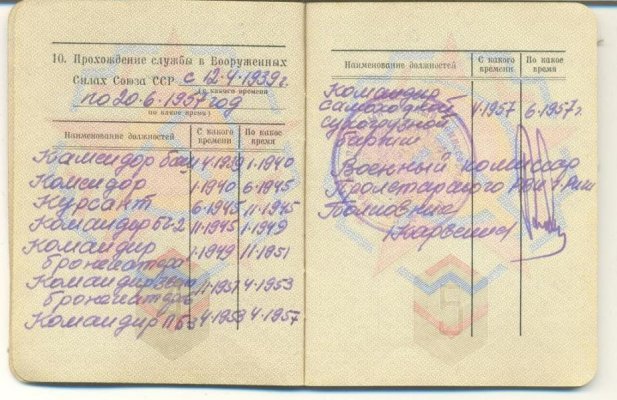 10. Прохождение службы в Вооруженных
Силах Союза ССР с 12·4·1939 г.
(с какого времени)
по 20·6·1957 год
(по какое время)
Наименование должностей С какого времени По какое время
4·1939 1·1940
1·1940 6·1945
Курсант 6·1945 11·1945
Командир 11·1945 1·1949
Командир 1·1949 11·1951
бронекатера
Командир 11·1951 4·1953
бронекатера
Командир 4·1953 4·1957
Наименование должностей С какого времени По какое время
Командир
самоходной 4·1957 6·1957 г.
сухогрузной
баржи
Военный комиссар
Пролетарского
Полковник